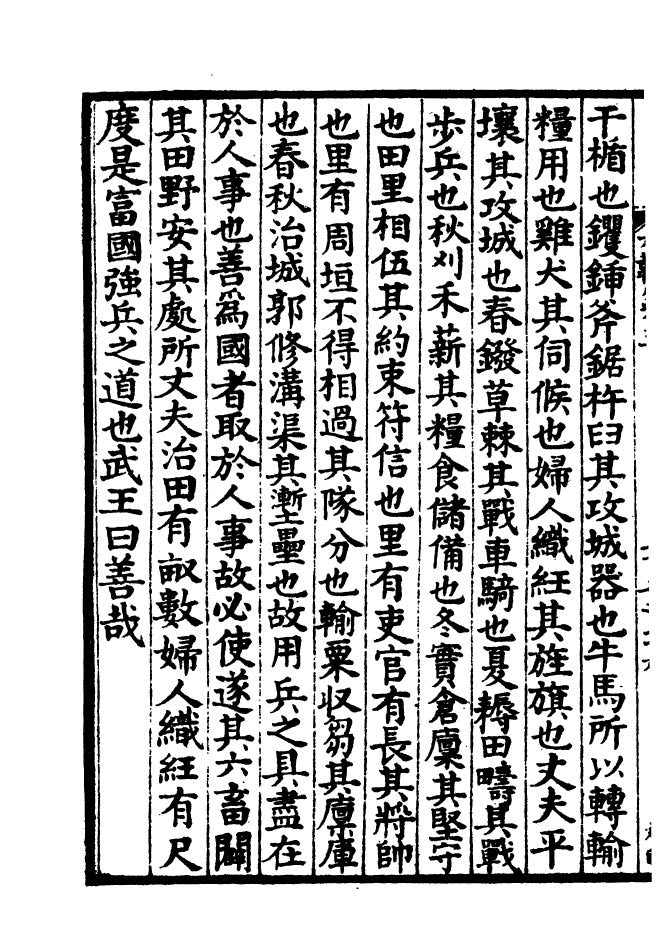 干楯也钁鍤斧鋸杵臼其攻城器也牛馬所以轉輸
糧用也雞犬其伺候也婦人織紝其旌旗也丈夫平
壤其攻城也春鏺草棘其戰車騎也夏耨田疇其戰
步兵也秋刈禾薪其糧食儲備也冬實倉廩其堅守
也田里相伍其約束符信也里有吏官有長其將帥
也里有周垣不得相過其隊分也輸粟収芻其廩庫
也春秋治城郭修溝渠其塹壘也故用兵之具盡在
於人事也善爲國者取於人事故必使遂其六畜闢
其田野安其處所丈夫治田有畝數婦人織紝有尺
度是富國強兵之道也武王曰善哉